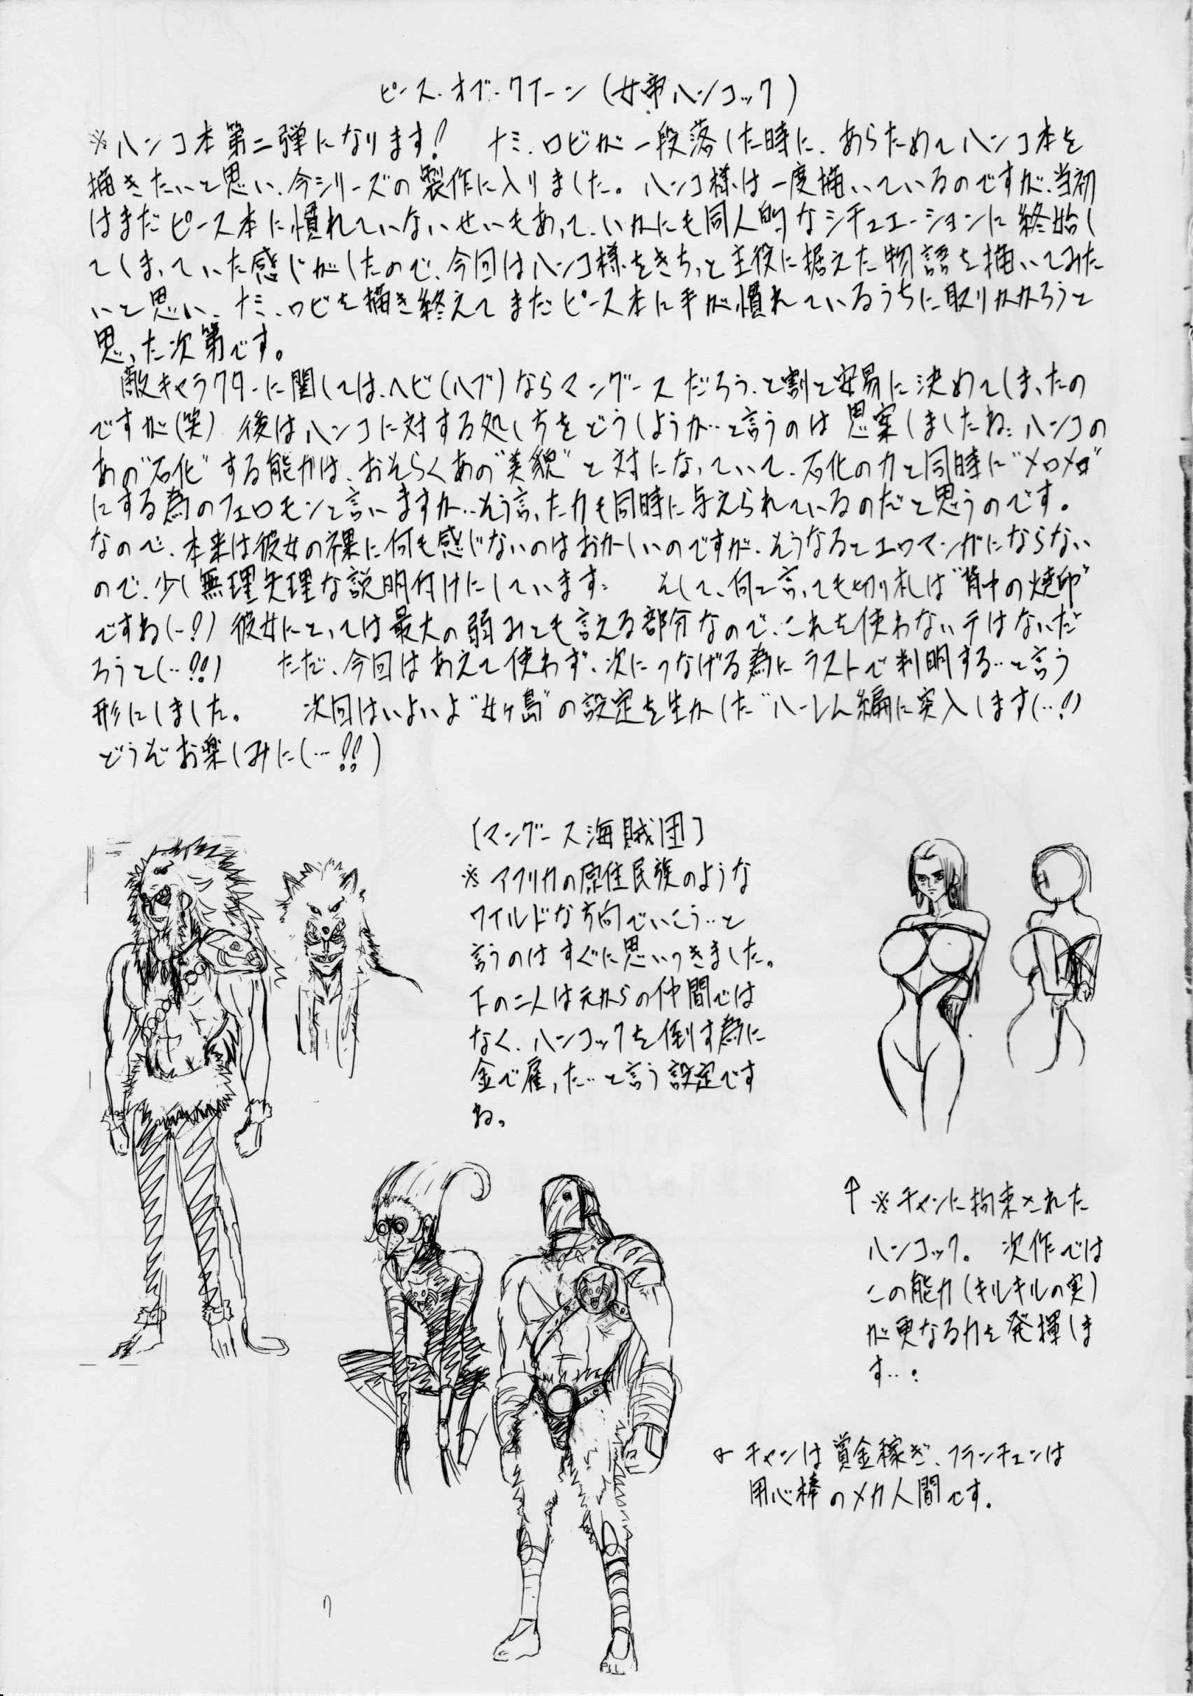 ピース・オブ・クイーン（女帝ハンコック）
※ハンコ本第二弾になります！　ナミ、ロビが一段落した時に、あらためてハンコ本を
描きたいと思い、今シリーズの製作に入りました。ハンコ様は一度描いているのですが、当初
はまだピース本に慣れていないせいもあって、いかにも同人的なシチュエーションに終始し
てしまっていた感じがしたので、今回はハンコ様をきちっと主役に据えた物語を描いてみた
いと思い、ナミ、ロビを描き終えてまだピース本に手が慣れているうちに取りかかろうと
思った次第です。
敵キャラクターに関しては、ヘビ（ハブ）ならマングースだろう、と割と安易に決めてしまったの
ですが（笑）後はハンコに対する処し方をどうしようか…と言うのは思案しましたね：ハンコの
あの"石化"する能力は、おそらくあの"美貌"と対になっていて、石化の力と同時に"メロメロ"
にする為のフェロモンと言いますか…そう言った力も同時に与えられているのだと思うのです。
なので、本来は彼女の裸に何も感じないのはおかしいのですが、そうなるとエロマンガにならない
ので、少し無理矢理な説明付けにしています：　そして、何と言っても切り札は"背中の焼印"
ですね（…？）彼女にとっては最大の弱みとも言える部分なので、これを使わないテはないだ
ろうと（…！？）　ただ、今回はあえて使わず、次につなげる為にラストで判明する…と言う
形にしました。　次回はいよいよ"女ヶ島"の設定を生かした"ハーレム編に突入します（…？）
どうぞお楽しみに（…！？）
［マングース海賊団］
※アフリカの原住民族のような
ワイルドな方向でいこう…と
言うのはすぐに思いつきました。
下の二人は元からの仲間では
なく、ハンコックを倒す為に
金で雇った…と言う設定です
ね。
↑※チャンに拘束された
ハンコック。　次作では
この能力（キルキルの実）
が更なる力を発揮しま
す…：
←チャンは賞金稼ぎ、フランチェンは
用心棒のメカ人間です。